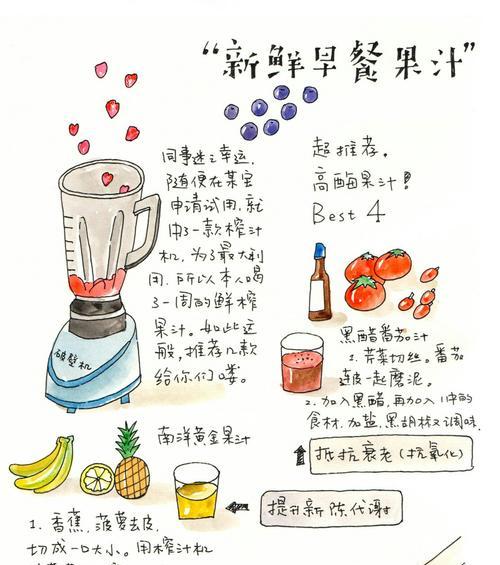 “新鲜早餐果汁”
同事迷之幸运,
随便在某宝
申请试用,就
中了一款榨汁
机,为了最大利
用,所以本人喝
了一周的鲜榨
果汁。如此这
般,推荐几款
给你们喽。
超推荐,
高酶果汁!
Best 4
破壁机
黑醋番茄汁
1. 芹菜切丝。番茄
连皮一起磨泥。
2. 加入黑醋,再加入1中的
食材,加盐,黑胡椒又调味.
抵抗衰老(抗氧化)
南洋黄金果汁
提升新陈代谢
1. 香蕉,菠萝去皮,
切成一口大小。用榨汁机